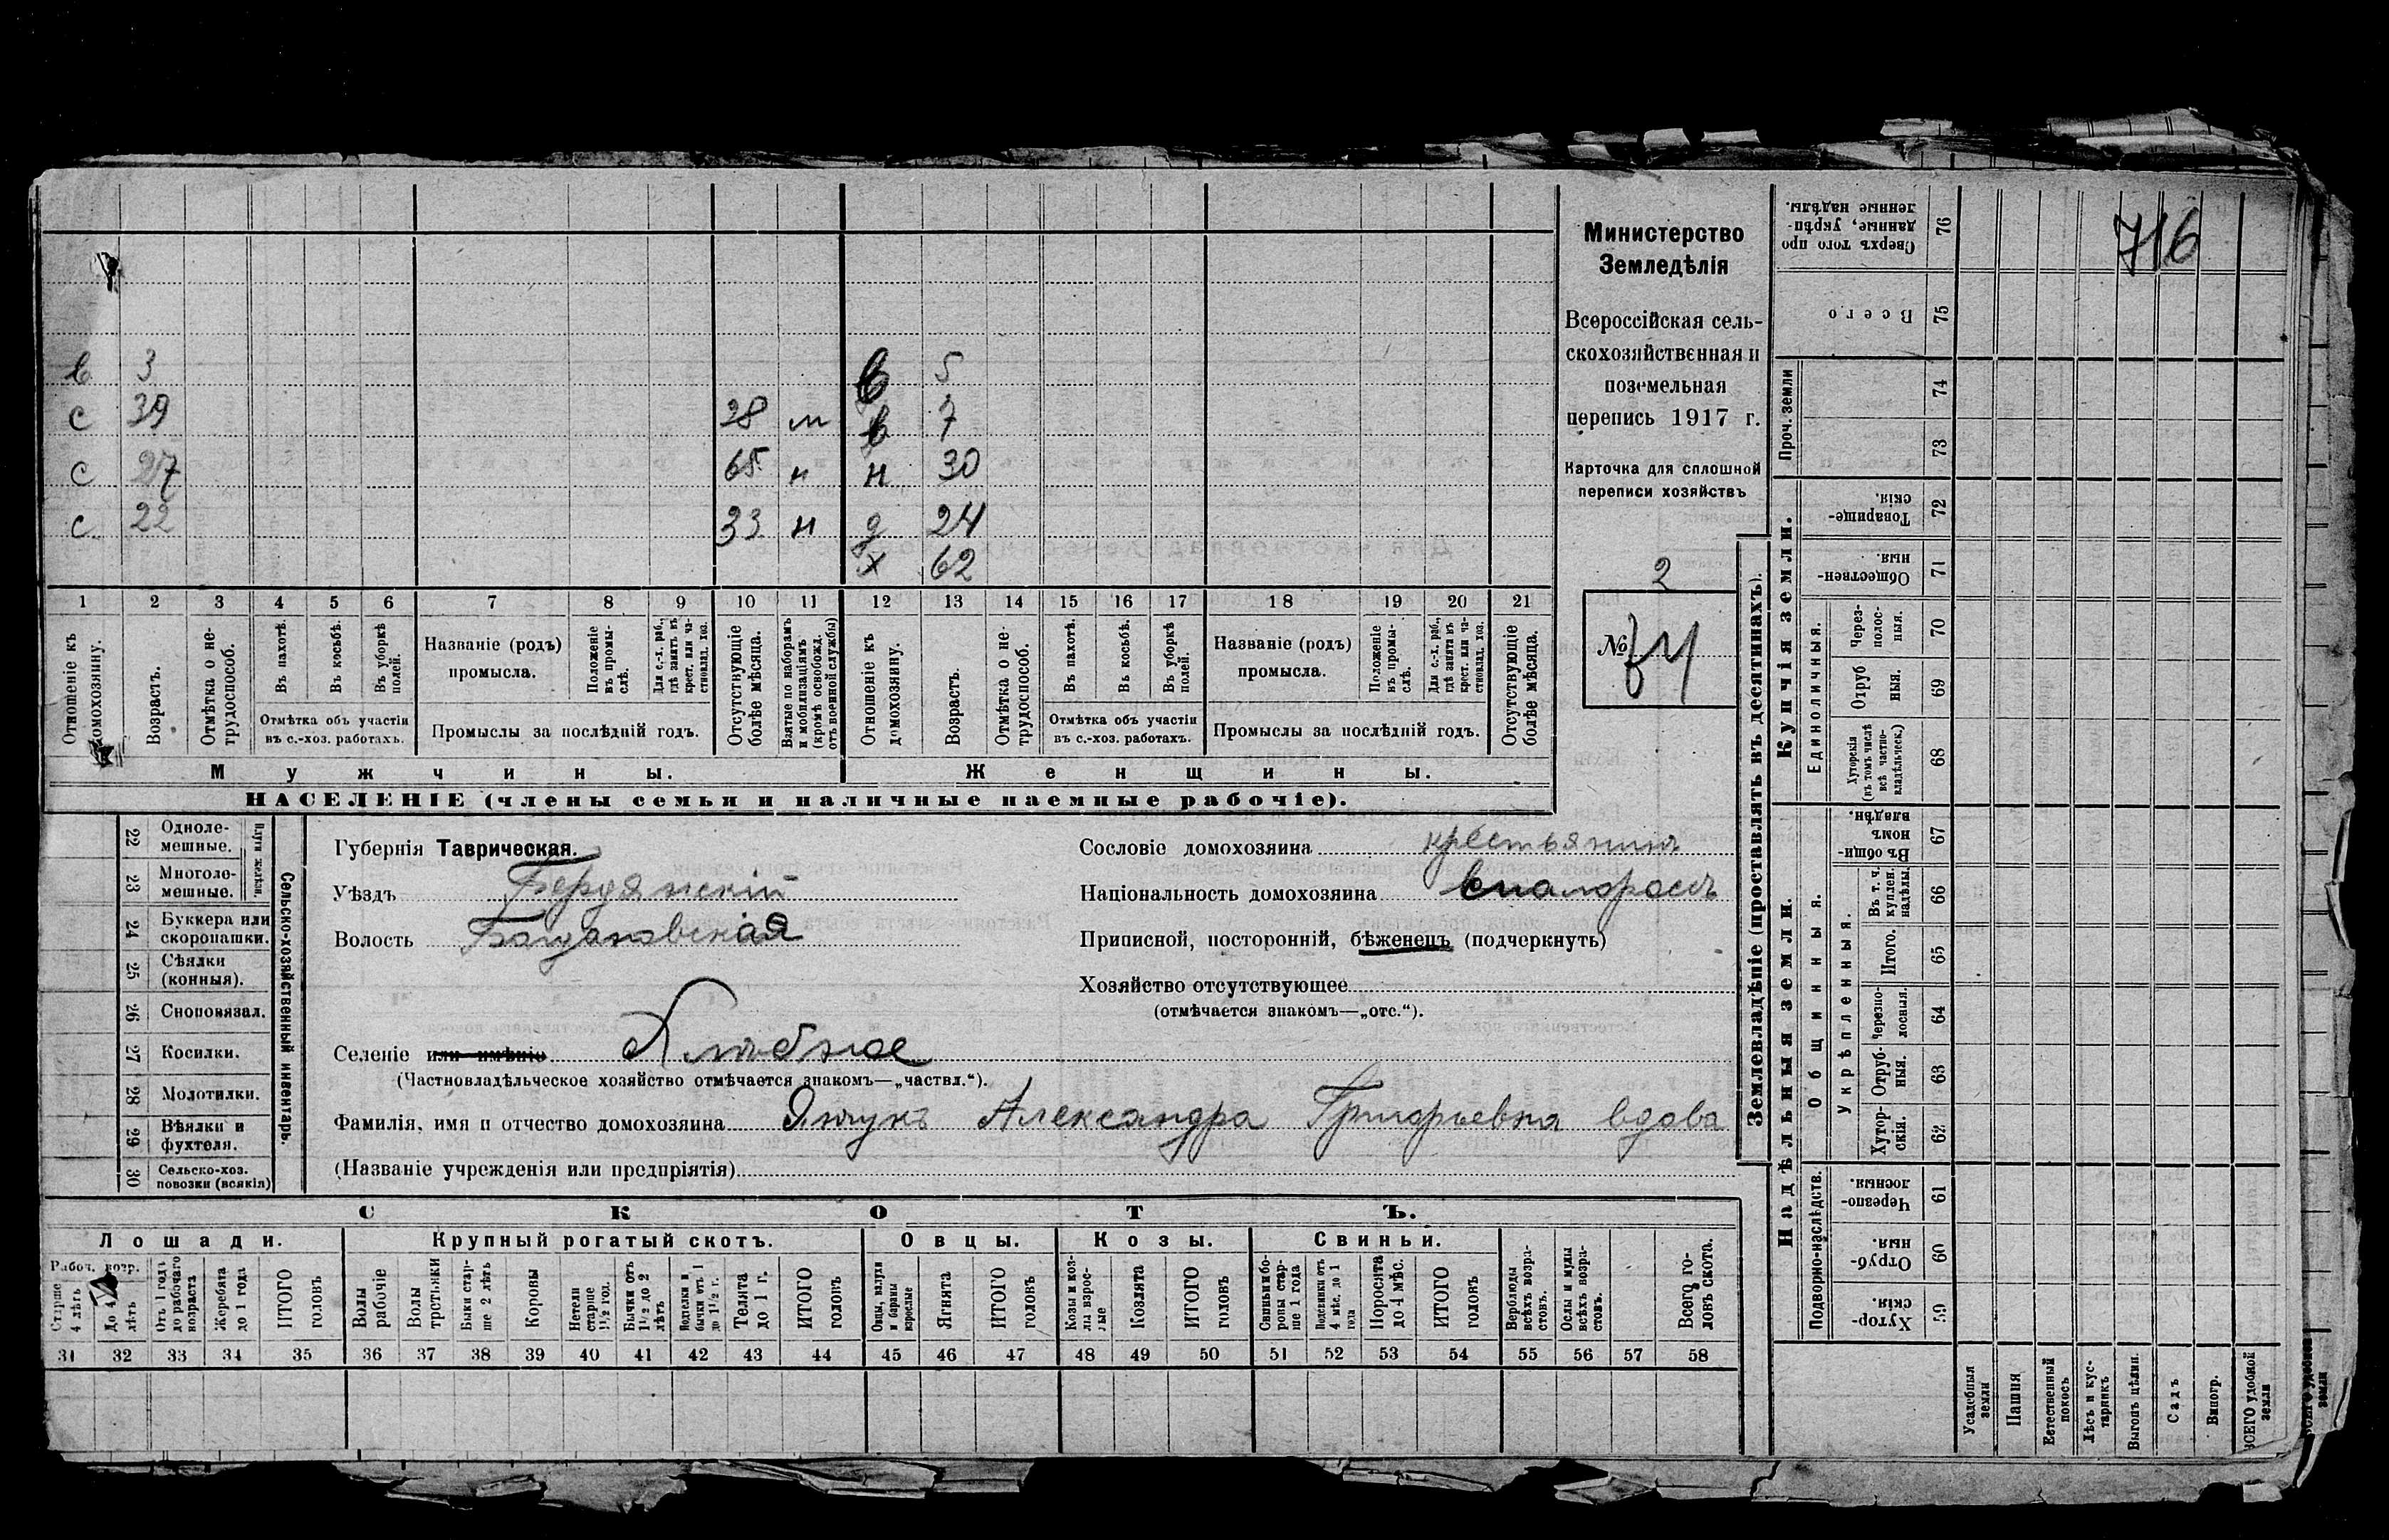 716
в 3 в 5
с 39 28 м в 7
с 27 65 н н 30
с 22 33 н д 24
х 62
1 2 3 4 5 6 7 8 9 10 11 12 13 14 15 16 17 18 19 20 21
Отношеніе къ домохозяину.
Возрастъ.
Отмѣтка о нетрудоспособ.
Въ пахотѣ.
Въ косьбѣ.
Въ уборкѣ полей.
Отмѣтка объ участіи
въ с.-хоз. работахъ.
Названіе (родъ)
промысла.
Положеніе въ промыслѣ.
Для с.-х. раб., гдѣ занятъ въ крест. или частновлад. хоз.
Промыслы за послѣдній годъ.
Отсутствующіе болѣе мѣсяца.
Взятые по наборамъ и мобилизаціямъ (кромѣ освобожд. отъ военной службы)
Отношеніе къ домохозяину.
Возрастъ.
Отмѣтка о нетрудоспособ.
Въ пахотѣ.
Въ косьбѣ.
Въ уборкѣ полей.
Отмѣтка объ участіи
въ с.-хоз. работахъ.
Названіе (родъ)
промысла.
Положеніе въ промыслѣ.
Для с.-х. раб., гдѣ занята въ крест. или частновлад. хоз.
Промыслы за послѣдній годъ.
Отсутствующіе болѣе мѣсяца.
Мужчины.
Женщины.
НАСЕЛЕНІЕ (члены семьи и наличные наемные рабочіе).
Министерство
Земледѣлія
Всероссійская сель-
скохозяйственная и
поземельная
перепись 1917 г.
Карточка для сплошной
переписи хозяйствъ
2
№
Сельско-хозяйственный инвентарь.
22 Одноле-
мешные.
23 Многоле-
мешные.
24 Буккера или
скоропашки.
25 Сѣялки
(конныя).
26 Сноповязал.
27 Косилки.
28 Молотилки.
29 Вѣялки и
фухтеля.
30 Сельско-хоз.
повозки (всякія)
Губернія Таврическая.
Уѣздъ Бердянскій
Волость
Селеніе или имѣніе Хлѣбное
(Частновладѣльческое хозяйство отмѣчается знакомъ—„частвл.“).
Фамилія, имя и отчество домохозяина Янчукъ Александра Григорьевна вдова
(Названіе учрежденія или предпріятія)
Сословіе домохозяина крестьянинъ
Національность домохозяина малороссъ
Приписной, посторонній, бѣженецъ (подчеркнуть)
Хозяйство отсутствующее
(отмѣчается знакомъ—„отс.“).
СКОТЪ.
Лошади.
Крупный рогатый скотъ.
Овцы.
Козы.
Свиньи.
Рабоч. возр.
Старше 4 лѣтъ
До 4 лѣтъ
Отъ 1 года до рабочаго возраста
Жеребята до 1 года
ИТОГО головъ
Волы рабочіе
Волы третьяки
Быки старше 2 лѣтъ
Коровы
Нетели старше 1½ год.
Бычки отъ 1½ до 2 лѣтъ
Телки и бычки отъ 1 до 1½ г.
Телята до 1 г.
ИТОГО головъ
Овцы, валухи и бараны взрослые
Ягнята
ИТОГО головъ
Козы и козлы взрослые
Козлята
ИТОГО головъ
Свиньи и боровы старше 1 года
Подсвинки отъ 4 мѣс. до 1 года
Поросята до 4 мѣс.
ИТОГО головъ
Верблюды всѣхъ возрастовъ.
Ослы и мулы всѣхъ возрастовъ.
Всего головъ скота.
31 32 33 34 35 36 37 38 39 40 41 42 43 44 45 46 47 48 49 50 51 52 53 54 55 56 57 58
Землевладѣніе (проставлять въ десятинахъ).
Сверхъ того проданные, укрѣпленные надѣлы. 76
Всего 75
Проч. земли
74
73
Купчія земли.
Товарищескія. 72
Общественныя. 71
Единоличныя.
Черезполосныя. 70
Отрубныя. 69
Хуторскія (въ томъ числѣ всѣ частновладѣльческ.) 68
Надѣльныя земли.
Общинныя.
Въ общинномъ владѣн. 67
Укрѣпленныя.
Въ т. ч. куплен. надѣлы. 66
Итого. 65
Черезполосныя. 64
Отрубныя. 63
Хуторскія. 62
Подворно-наслѣдств.
Черезполосныя. 61
Отрубныя. 60
Хуторскія. 59
Усадебныя земли
Пашня
Естественный покосъ
Лѣсъ и кустарникъ
Выгонъ цѣлин.
Садъ
Виногр.
ВСЕГО удобной земли